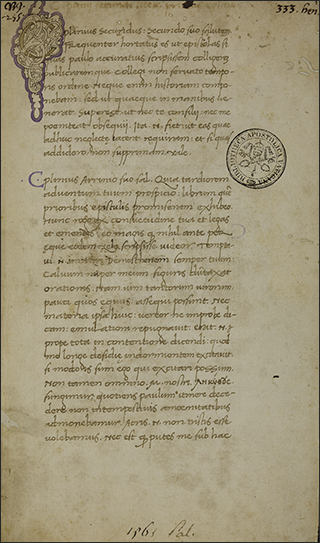 333. hen
C plinius Secundus Secundo suo salutem
frequenter hortatus es ut epistolas si
quas paulo accuratius scripsissem colligerem
publicaremque collegi non servato tempo
ris ordine Neque enim historiam compo
nebam: sed ut quaeque in manibus ve
nerat. Superest ut nec te consilii nec me
poeniteat obsequii. Ita N. fiet ut eas quae
adhuc neglectae iacent requiram: et si quas
addidero non supprimam vale.
C plinius Arriano suo sal. Quia tardiorem
adventum tuum prospicio: librum que
prioribus epistulis promiseram exhibeo.
Hunc rogo ex consuetudine tua et legas
et emendes: eo magis q nihil ante
eque eodem scripsisse videor. Tempta
vi N Demosthenem semper tuum:
Calvum nuper meum figuris dumtaxat
orationis. Nam vim tantorum virorum
pauci quos equus assequi possunt. Nec
materia ipsa huic: vereor ne improbe di
cam: emulationi repugnavit: erat N. p
prope tota in contentione dicendi: quod
me longe desidie indormientem excitavit
si modo is sum ego qui excitari possim.
Non tamen omnino. M. nostri ΛΗΚΥΘΟΥΣ
fugimus: quotiens paulum itinere dece
dere non intempestivis amoenitatibus
admonebamur. Acres. N non tristes esse
volebamus. Nec est q putes me sub hac
1561 Pal.